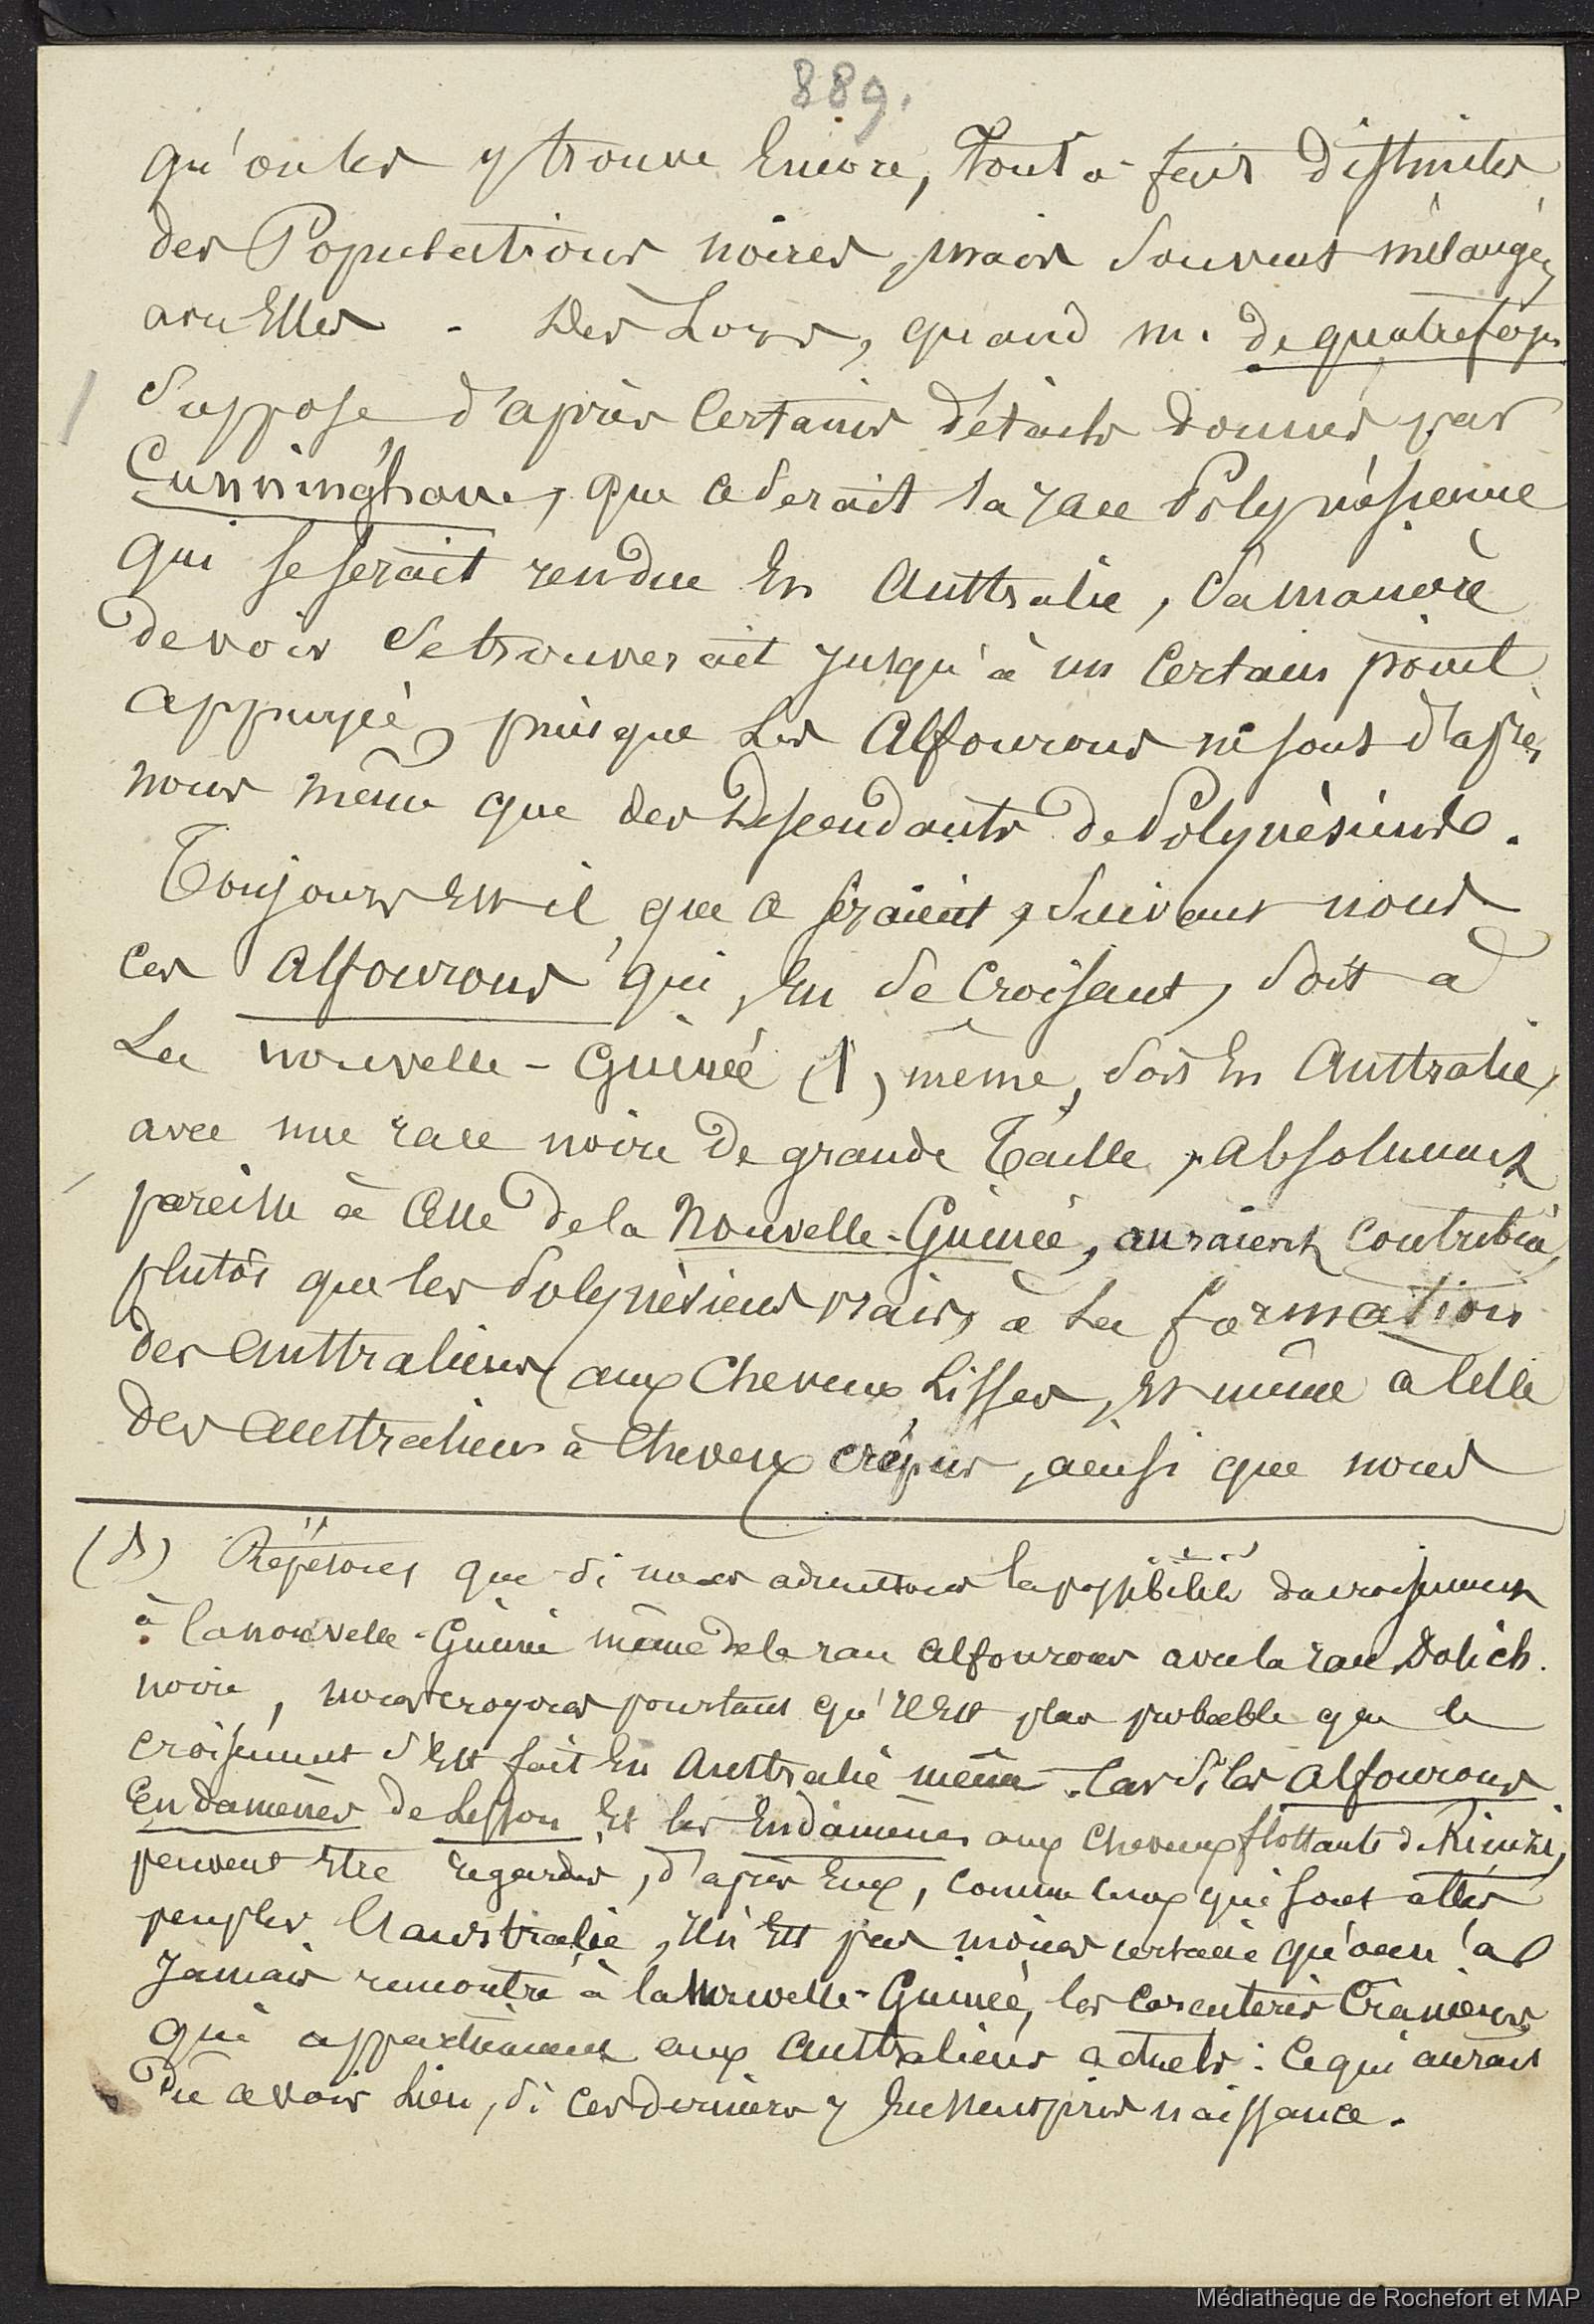 889.
qu'on les y trouve Encore, tout à fait distinctes
des Populations noires, mais souvent mélangés
avec Elles - Dès Lors, quand m. de quatrefages
Suppose d'après Certains détails donnés par
Cunningham, que ce serait la race Polynésienne
qui se serait rendue En Australie, Sa manière
de voir Se trouverait jusqu'à un Certain point
appuyée, puisque les Alfourous ne sont d'après
nous même que des Descendants de Polynésiens.
Toujours Est-il, que ce seraient, suivant nous
ces Alfourous qui, En Se Croisant, soit à
La nouvelle-Guinée (1) même, soit En Australie,
avec une race noire de grande taille, absolument
pareille à Celle de la Nouvelle-Guinée, auraient contribué,
plutôt que les Polynésiens vrais, à La formation
des Australiens aux Cheveux Lisses, Et même à Celle
des Australiens à Cheveux crépus, ainsi que nous
(1) Répétons que si nous admettons la possibilité du croisement
à la nouvelle-Guinée même de la race Alfourous avec la race Dolich.
noire, nous croyons pourtant qu'il Est plus probable que le
croisement s'Est fait En Australie même. Car si les Alfourous
Endamènes de Lesson Et les Endamènes aux Cheveux flottants de Rienzi,
peuvent Etre regardés, d'après Eux, comme Ceux qui sont allés
peupler L'australie, il n'Est pas moins certain qu'on n'a
Jamais rencontré à la Nouvelle-Guinée, les Caractères Crâniens
qui appartiennent aux Australiens actuels: Ce qui aurait
dû avoir Lieu, si Ces derniers y Eussent pris naissance.
Médiathèque de Rochefort et MAP